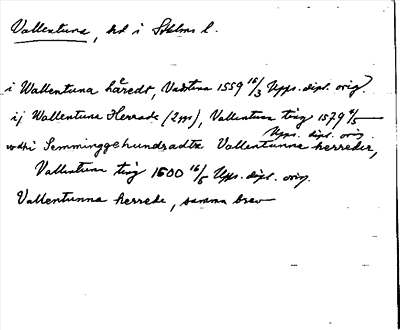 Vallentuna, hd i Sthlms l.
i Wallentuna håredt, Vadstena 1559 16/3 Upps. dipl. orig.
ij Wallentuna Herrade (2 ggr), Vallentuna ting 1579 4/5
Upps. dipl. orig.
wdhi Semminggehundradtz Vallentunna herreder,
Vallentuna ting 1600 16/5 Upps. dipl. orig.
Vallentunna herrede, samma brev